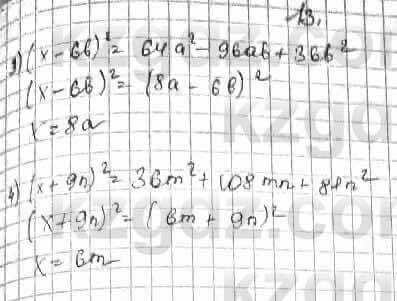 13.
3) (x-6b)²= 64a²-96ab+36b²
(x-6b)²= (8a-6b)²
x=8a
4) (x+9n)²= 36m²+108mn+81n²
(x+9n)²= (6m+9n)²
x=6m